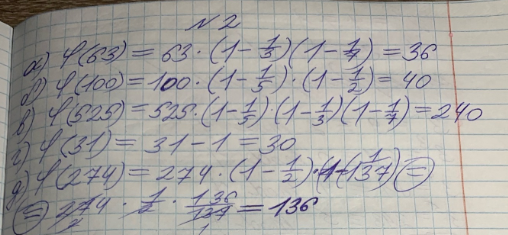 №2
а) φ(63) = 63 · (1 - 1/3)(1 - 1/7) = 36
б) φ(100) = 100 · (1 - 1/5) · (1 - 1/2) = 40
в) φ(525) = 525 · (1 - 1/5)(1 - 1/3)(1 - 1/7) = 240
г) φ(31) = 31 - 1 = 30
д) φ(274) = 274 · (1 - 1/2) · (1 - 1/137) =
= 274 · 1/2 · 136/137 = 136